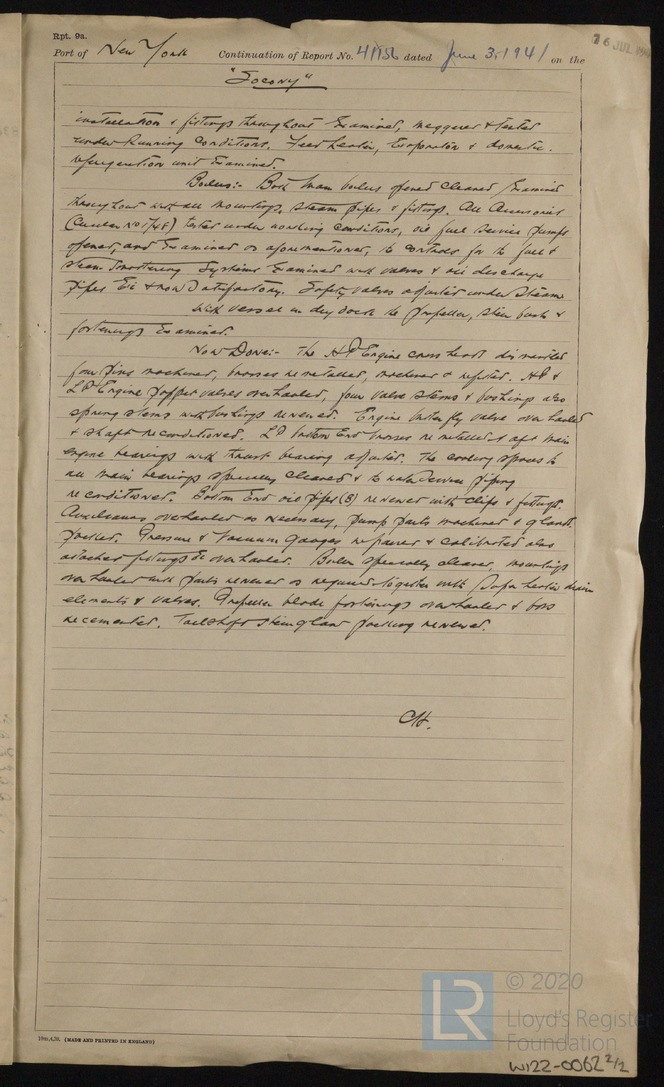 Rpt. 9a.
16 JUL 194
Port of New York Continuation of Report No. 41156 dated June 3, 1941 on the
"Socony"
installation & fittings throughout Examined, meggered & tested
under Running Conditions. Feed heater, Evaporator & domestic
refrigeration unit Examined.
Boilers:- Both main boilers opened cleaned Examined
throughout with all mountings, steam pipes & fittings. All Accessories
tested under working conditions, oil fuel service pumps
opened, and Examined as aforementioned, the controls for the fuel &
steam Smothering Systems Examined with valves & oil discharge
pipes Etc & now Satisfactory. Safety valves adjusted under Steam
With vessel in dry dock the propeller, stern bush &
fastenings Examined.
Now Done:- The HP Engine cross heads dismantled
four pins machined, brasses remetalled, machined & refitted. HP &
LP Engine poppet valves overhauled, four valve stems & bushings also
spring stems with bushings renewed. Engine butterfly valve over hauled
& shaft reconditioned. LP bottom End brasses remetalled & aft main
engine bearings with thrust bearing adjusted. The cooling spaces to
all main bearings specially cleaned & the water service piping
reconditioned. Bottom End oil pipes (8) renewed with clips & fittings.
Auxiliaries overhauled as necessary, pump parts machined & glands
packed. Pressure & Vacuum gauges repaired & calibrated also
attached fittings overhauled. Boilers specially cleaned, mountings
over hauled with parts renewed as required together with Super heater drain
elements & valves. Propeller blade fastenings overhauled & boss
recemented. Tailshaft stern gland packing renewed.
CH.
10m.4.39. (MADE AND PRINTED IN ENGLAND)
LR
© 2020
Lloyd's Register
Foundation
W122-0062 2/2